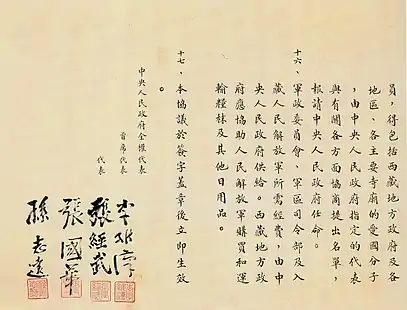 員，得包括西藏地方政府及各
地區、各主要寺廟的愛國分子
，由中央人民政府指定的代表
與有關各方面協商提出名單，
報請中央人民政府任命。
十六、軍政委員會、軍區司令部及入
藏人民解放軍所需經費，由中
央人民政府供給。西藏地方政
府應協助人民解放軍購買和運
輸糧秣及其他日用品。
十七、本協議於簽字蓋章後立即生效
。
中央人民政府全權代表
首席代表
代表
李維漢
張經武
張國華
孫志遠